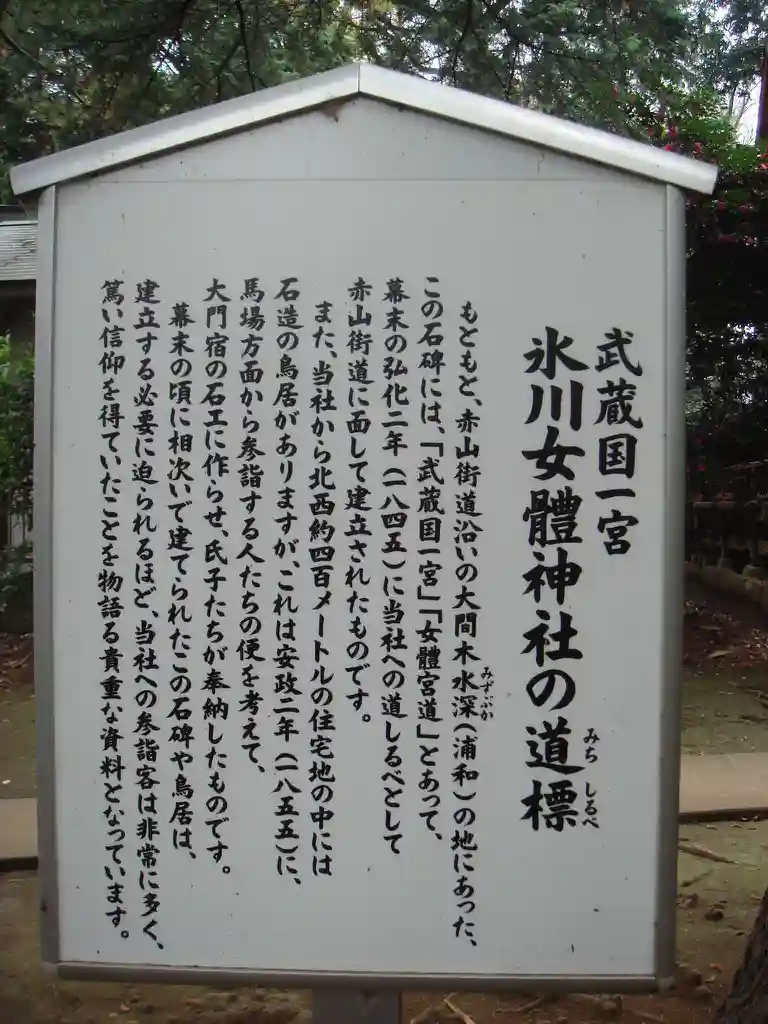 武蔵国一宮
氷川女體神社の道標
みち しるべ
もともと、赤山街道沿いの大間木水深(浦和)の地にあった、
みずぶか
この石碑には、「武蔵国一宮」「女體宮道」とあって、
幕末の弘化二年(一八四五)に当社への道しるべとして
赤山街道に面して建立されたものです。
また、当社から北西約四百メートルの住宅地の中には
石造の鳥居がありますが、これは安政二年(一八五五)に、
馬場方面から参詣する人たちの便を考えて、
大門宿の石工に作らせ、氏子たちが奉納したものです。
幕末の頃に相次いで建てられたこの石碑や鳥居は、
建立する必要に迫られるほど、当社への参詣客は非常に多く、
篤い信仰を得ていたことを物語る貴重な資料となっています。